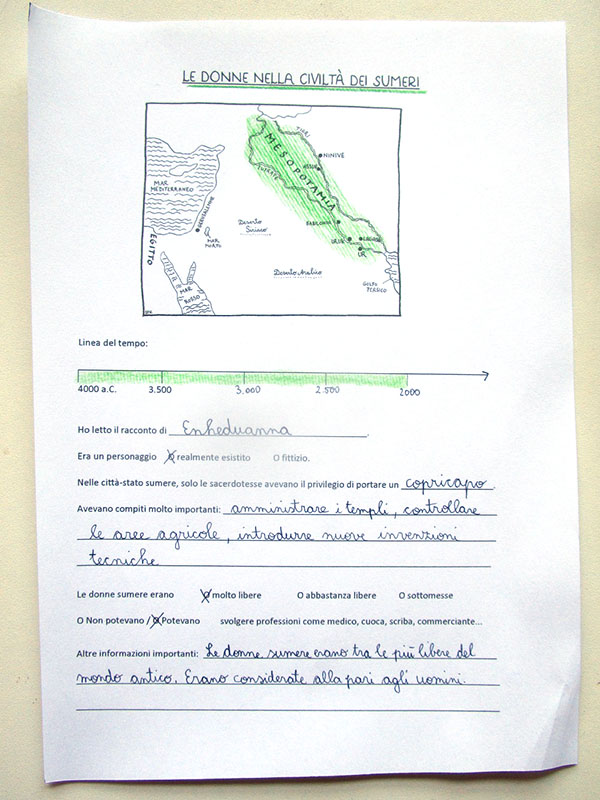 LE DONNE NELLA CIVILTÀ DEI SUMERI
TIGRI
MESOPOTAMIA
NINIVE
ASSUR
EUFRATE
MAR
MEDITERRANEO
GERUSALEMME
BABILONIA
Deserto
Siriaco
MAR
MORTO
EGITTO
URUK
LAGASH
UR
Deserto Arabico
GOLFO
PERSICO
MAR
ROSSO
Linea del tempo:
4000 a.C. 3.500 3.000 2.500 2000
Ho letto il racconto di Enheduanna.
Era un personaggio realmente esistito O fittizio.
Nelle città-stato sumere, solo le sacerdotesse avevano il privilegio di portare un copricapo.
Avevano compiti molto importanti: amministrare i templi, controllare
le aree agricole, introdurre nuove invenzioni
tecniche
Le donne sumere erano molto libere O abbastanza libere O sottomesse
O Non potevano / Potevano svolgere professioni come medico, cuoca, scriba, commerciante...
Altre informazioni importanti: Le donne sumere erano tra le più libere del
mondo antico. Erano considerate alla pari agli uomini.